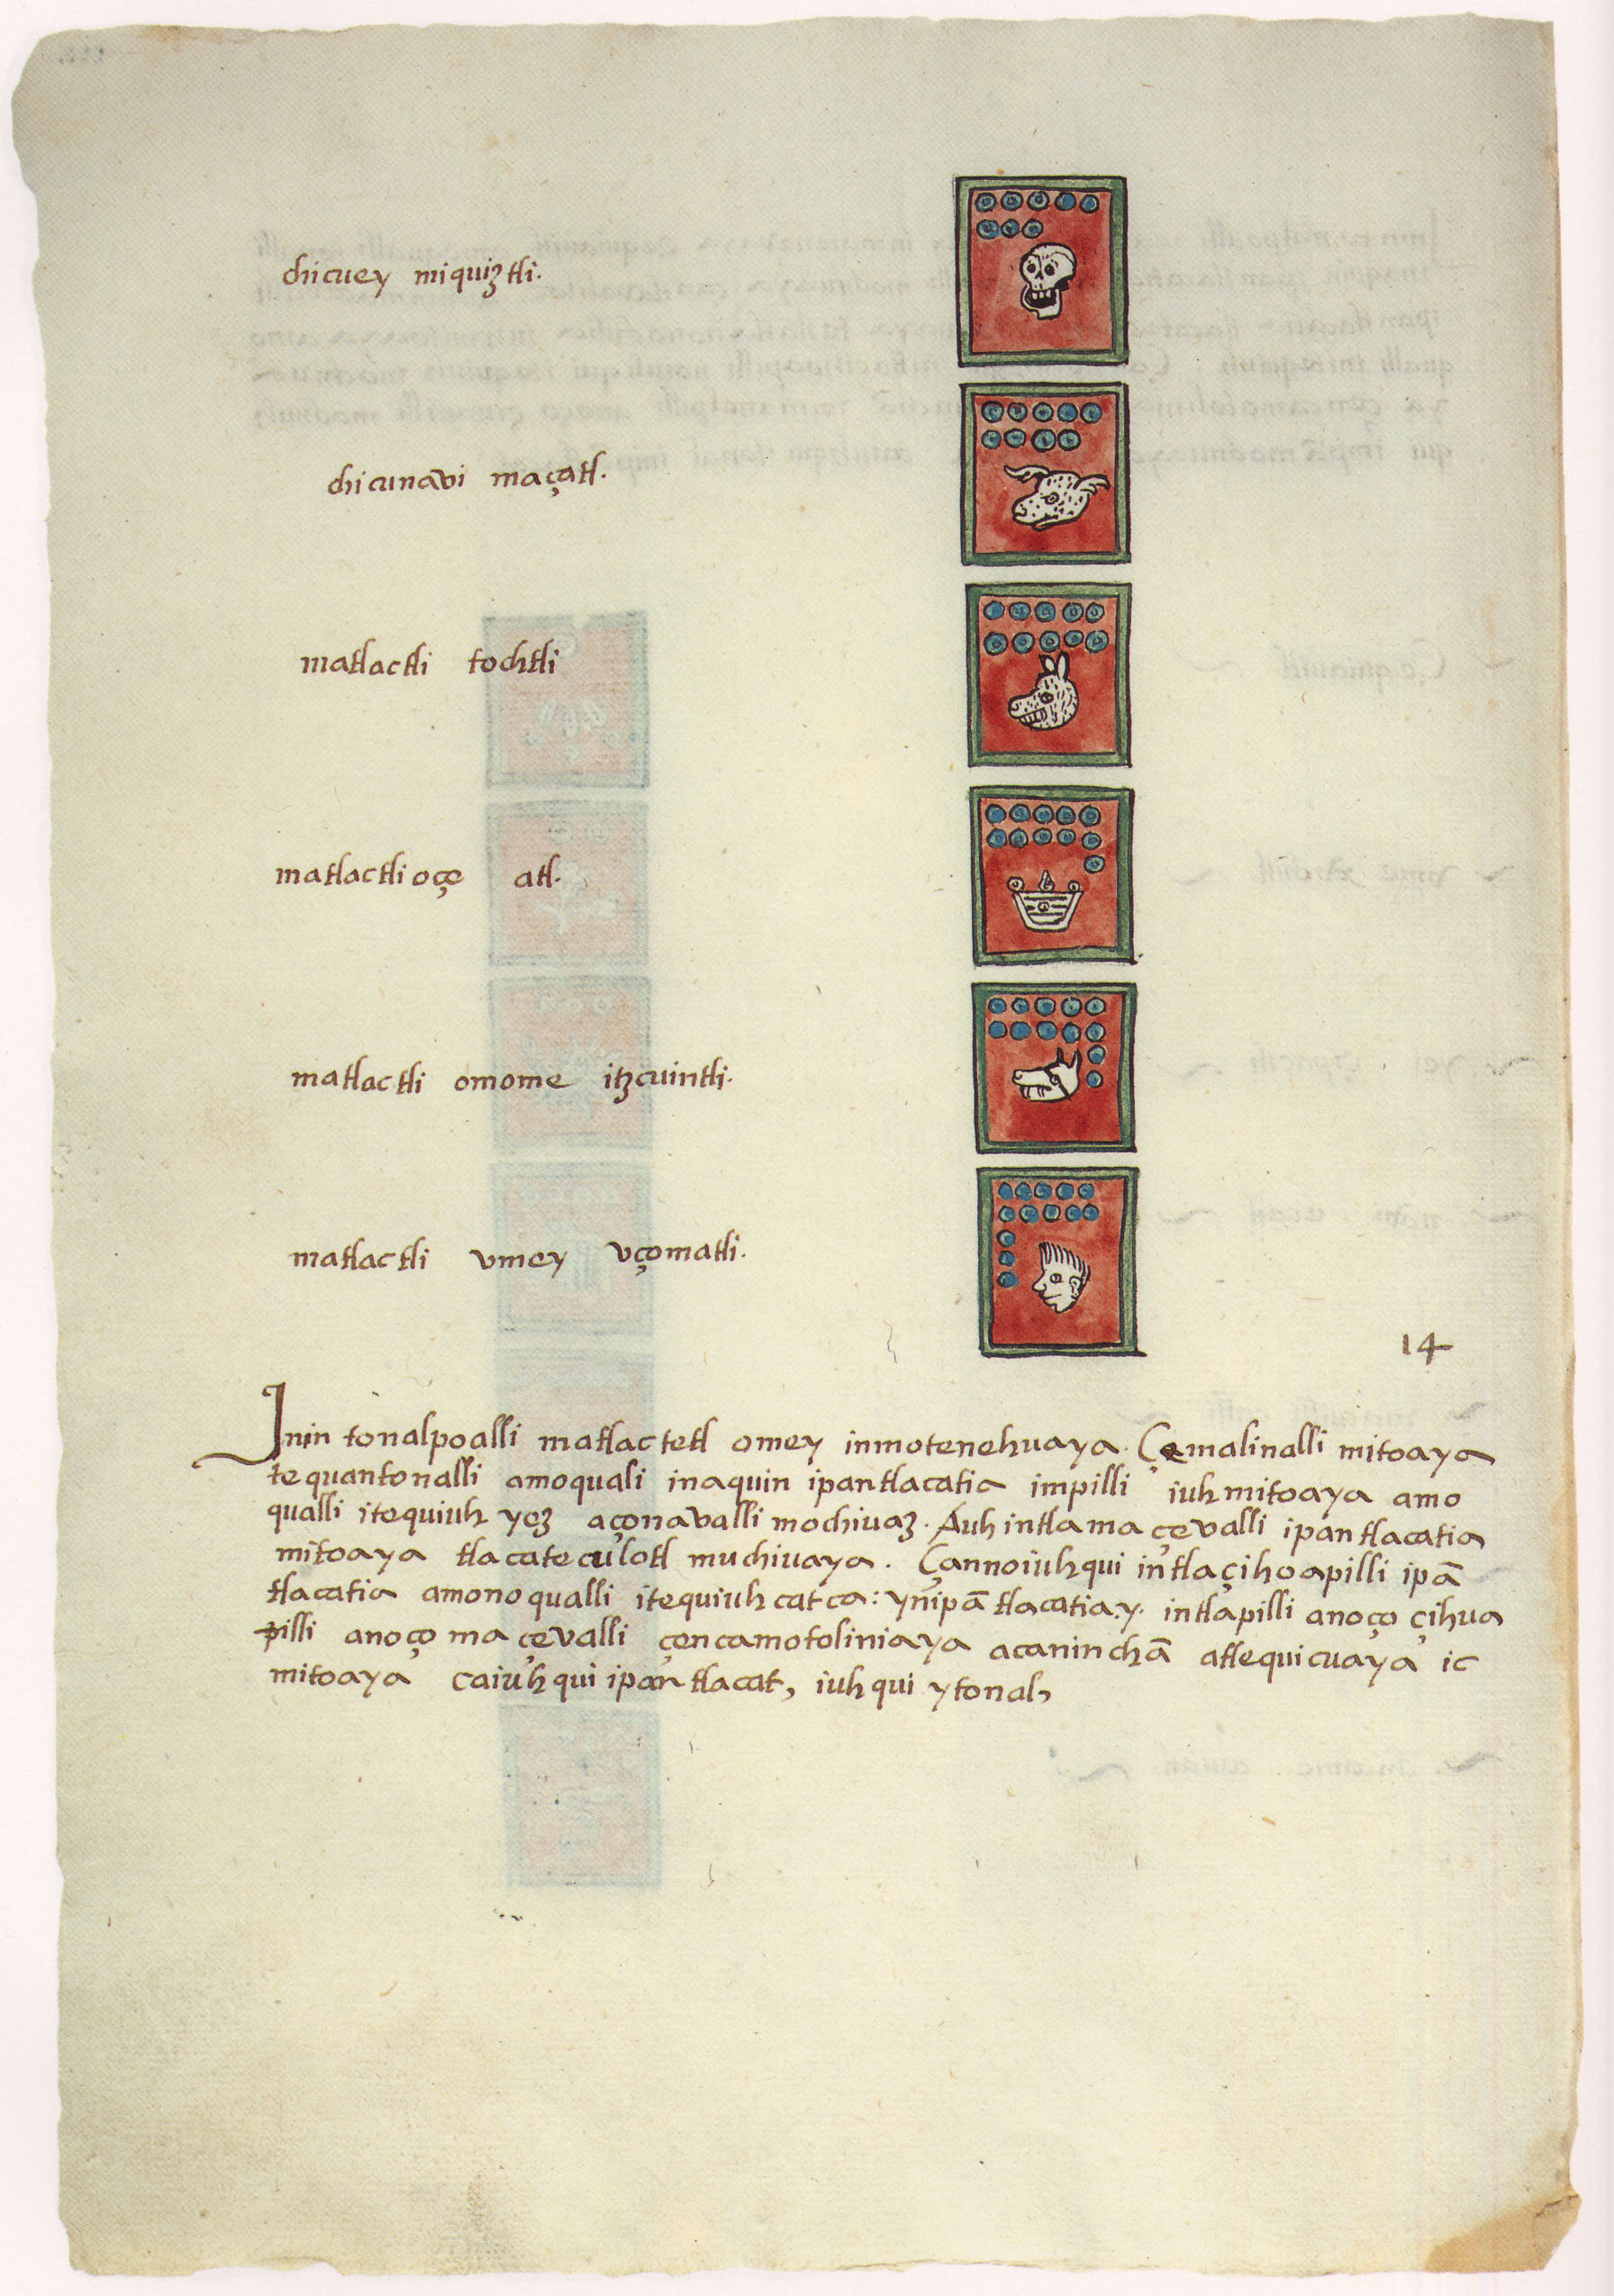 chicuey miquiztli.
chicunavi maçatl.
matlactli tochtli
matlactlioçe atl.
matlactli omome itzcuintli.
matlactli vmey vçomatli.
14
Inin tonalpoalli matlactetl omey inmotenehuaya. Çemalinalli mitoaya
tequantonalli amoquali inaquin ipantlacatia impilli iuhmitoaya amo
qualli itequiuh yez açonavalli mochivaz. Auh intla maçevalli ipan tlacatia
mitoaya tlacateculotl muchivaya. Çannoiuhqui intlaçihoapilli ipā
tlacatia amono qualli itequiuh catca: ynipā tlacatia.y. intlapilli anoço çihua
pilli anoço maçevalli çencamotoliniaya acaninchā atlequicuaya ic
mitoaya caiuhqui ipan tlacat, iuhqui ytonal,